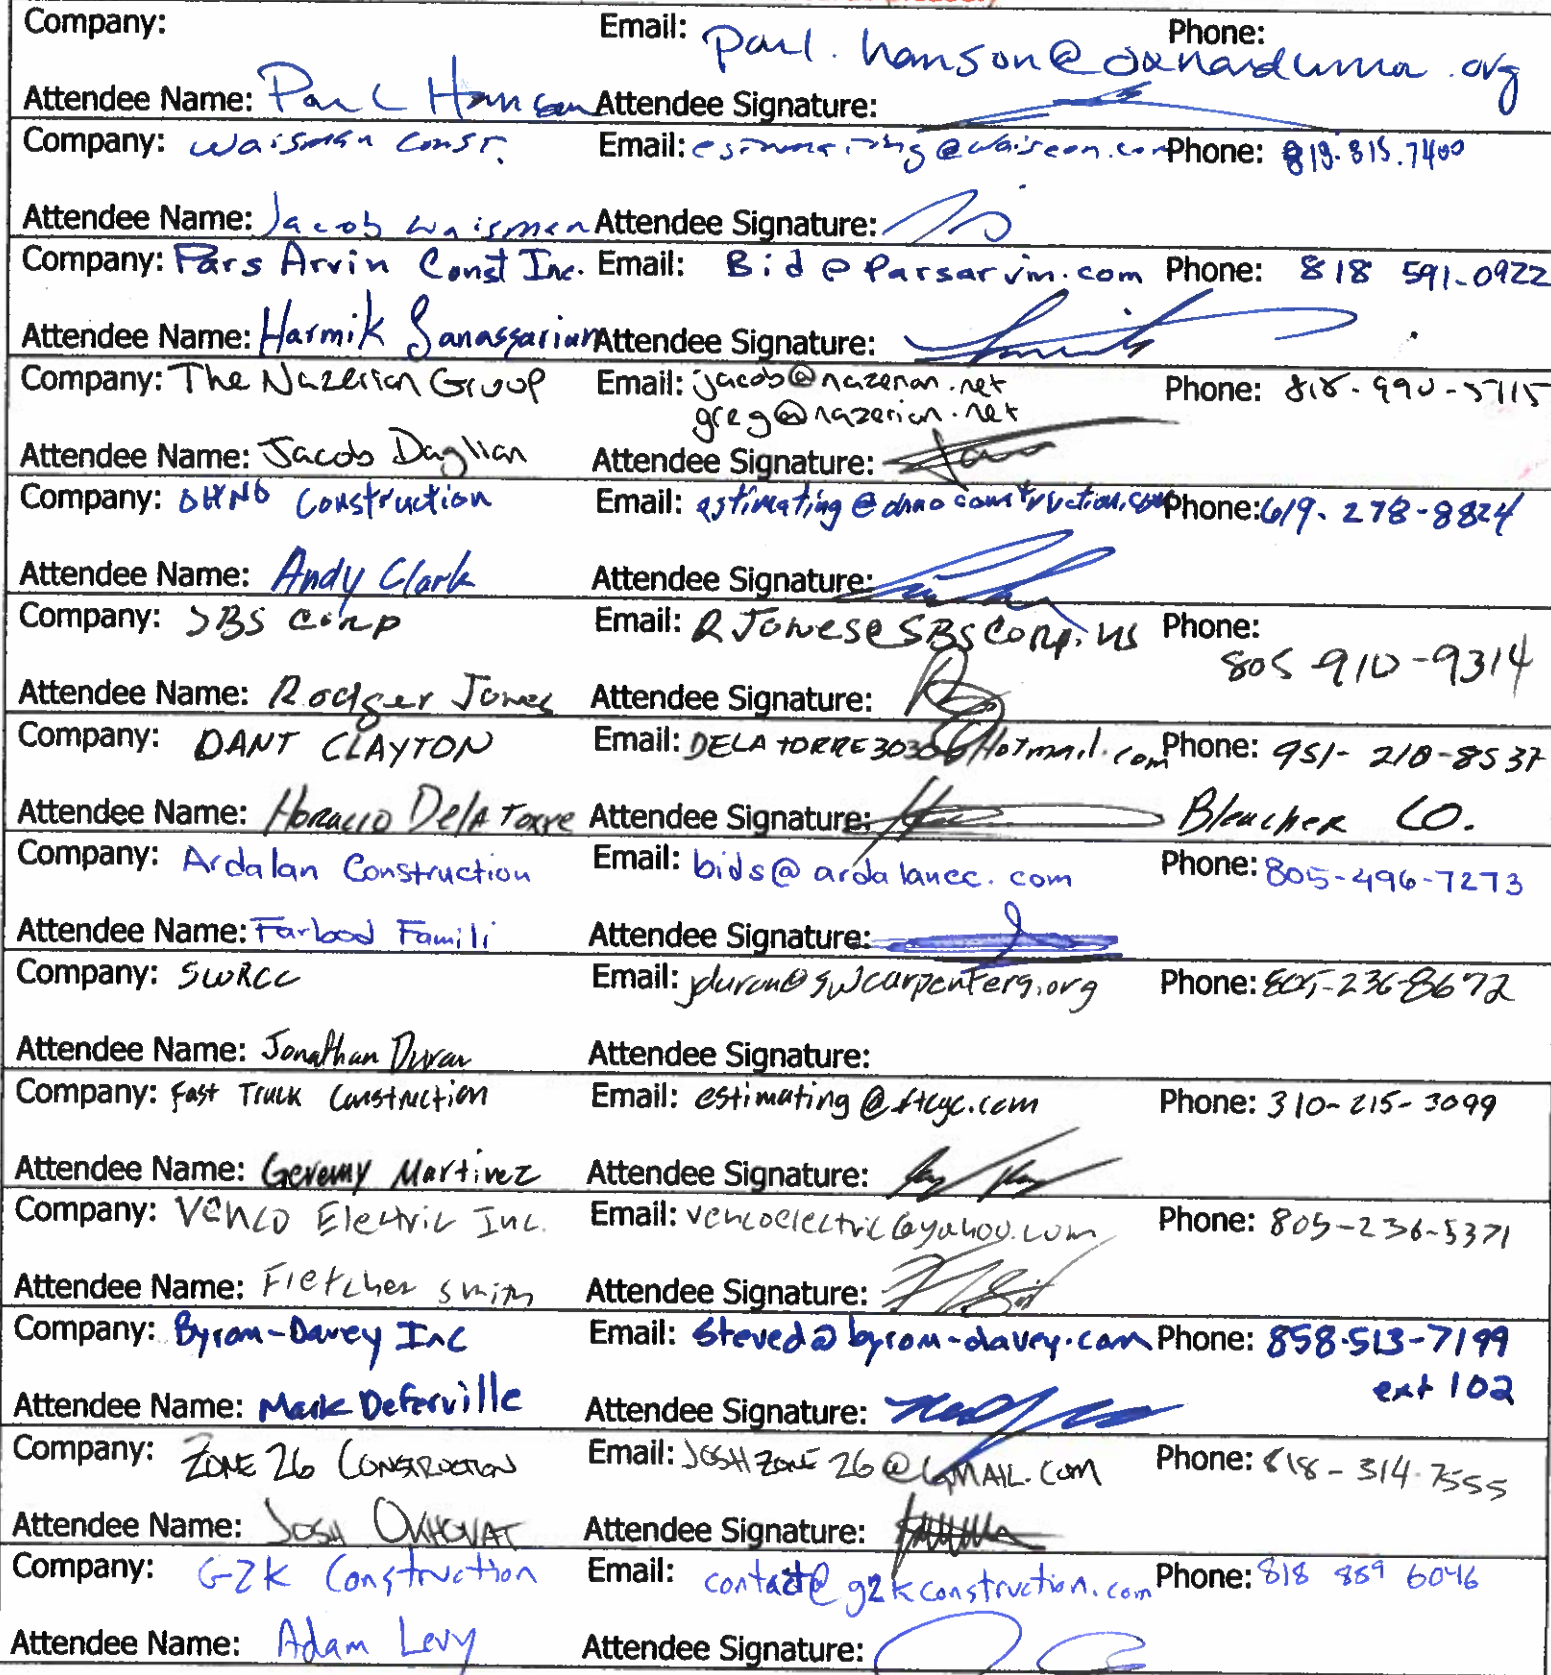 Company: Email: paul.hanson@oxnardunion.org Phone:
Attendee Name: Paul Hanson Attendee Signature:
Company: Waisman Const. Email: estimating@waiscon.com Phone: 818.815.7400
Attendee Name: Jacob Waisman Attendee Signature:
Company: Pars Arvin Const Inc. Email: Bid@Parsarvin.com Phone: 818 591-0922
Attendee Name: Harmik Sanassarian Attendee Signature:
Company: The Nazerian Group Email: jacob@nazerian.net Phone: 818-990-5715
greg@nazerian.net
Attendee Name: Jacob Daglian Attendee Signature:
Company: DHNO Construction Email: estimating@dhnoconstruction.com Phone: 619-278-8824
Attendee Name: Andy Clark Attendee Signature:
Company: SBS Corp Email: RJones@SBSCorp.us Phone:
805-910-9314
Attendee Name: Rodger Jones Attendee Signature:
Company: DANT CLAYTON Email: DELATORRE3030@Hotmail.com Phone: 951-210-8537
Attendee Name: Horacio DelA Torre Attendee Signature: Bleacher CO.
Company: Ardalan Construction Email: bids@ardalancc.com Phone: 805-496-7273
Attendee Name: Farbod Famili Attendee Signature:
Company: SWRCC Email: jduran@swcarpenters.org Phone: 805-236-8672
Attendee Name: Jonathan Duran Attendee Signature:
Company: Fast Track Construction Email: estimating@ftcyc.com Phone: 310-215-3099
Attendee Name: Geremy Martinez Attendee Signature:
Company: Venco Electric Inc. Email: vencoelectric@yahoo.com Phone: 805-236-5371
Attendee Name: Fletcher Smith Attendee Signature:
Company: Byrom-Davey Inc Email: Steved@byrom-davey.com Phone: 858-513-7199
ext 102
Attendee Name: Mark Deferville Attendee Signature:
Company: ZONE 26 CONSTRUCTION Email: JOSHZONE26@GMAIL.COM Phone: 818-314-7555
Attendee Name: JOSH OKHOVAT Attendee Signature:
Company: G2K Construction Email: contact@g2kconstruction.com Phone: 818 889 6046
Attendee Name: Adam Levy Attendee Signature: